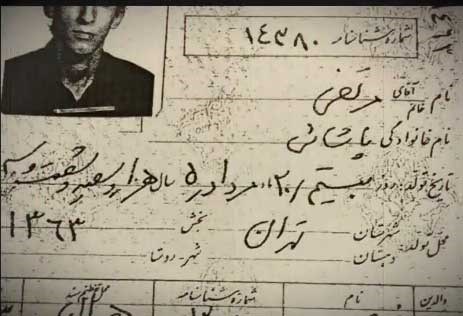 شماره شناسنامه ۱۴۳۸۰
نام آقای خانم مرتضی
نام خانوادگی پاشائی
تاریخ تولد: روز بیستم /۲۰ ماه مرداد /۵ سال هزار و سیصد و شصت و سه
۱۳۶۳
محل تولد: شهرستان تهران بخش
دهستان شهر - روستا
والدین نام شماره شناسنامه